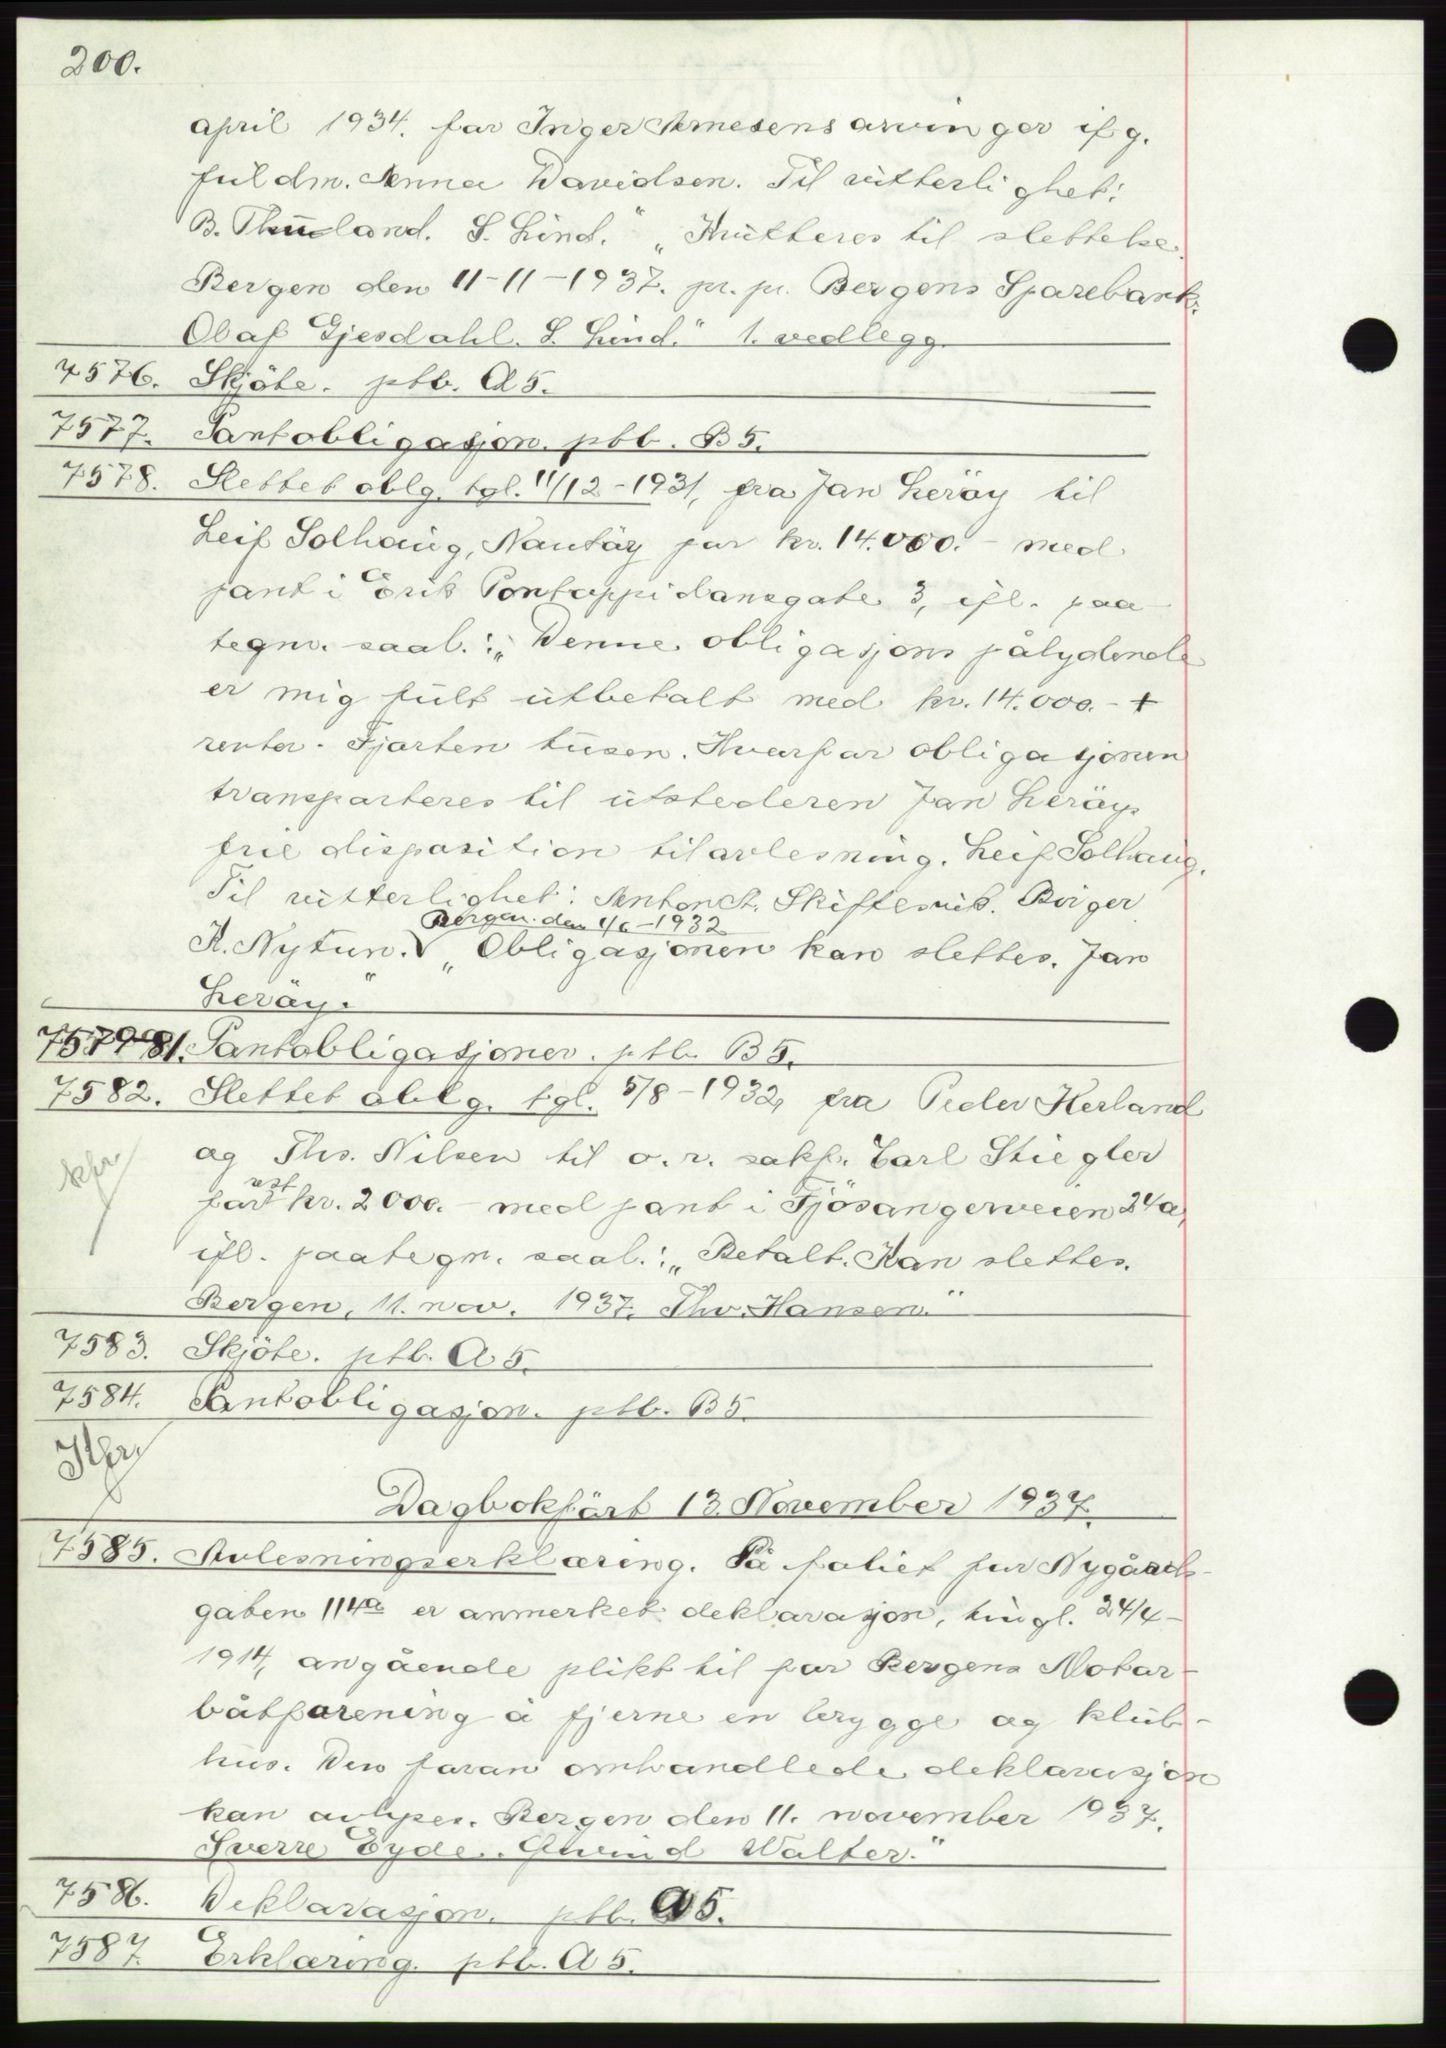 200.
april 1934. for Inger Arnesens arvinger ifg.
fuldm. Anna Davidsen. Til vitterlighet:
B. Thuland. S. Lind." „Kvitteres til slettelse.
Bergen den 11-11-1937. pr. pr. Bergens Sparebank.
Olaf Gjesdahl. S. Lind." 1. vedlegg.
7576. Skjöte. ptb. A 5.
7577. Pantobligasjon. ptb. B 5.
7578. Slettet oblg. tgl. 11/12-1931, fra Jan Leröy til
Leif Solhaug, Nautöy for kr. 14.000.- med
pant i Erik Pontoppidansgate 3, ifl. paa-
tegn. saal.: „Denne obligasjons pålydende
er mig fult utbetalt med kr. 14.000.- +
renter. Fjorten tusen. Hvorfor obligasjonen
transporteres til utstederen Jan Leröys
frie disposition til avlesning. Leif Solhaug.
Til vitterlighet: Anton Skiftesvik. Birger
Bergen den 1/6-1932
K. Nytun. V „Obligasjonen kan slettes. Jan
Leröy."
7579-81. Pantobligasjoner. ptb. B 5.
7582. Slettet oblg. tgl. 5/8-1932, fra Peder Herland
og Ths. Nilsen til o.r. sakf. Carl Stiegler
for rest kr. 2000.- med pant i Fjösangerveien 24a,
ifl. paategn. saal.: „Betalt. Kan slettes.
Bergen, 11. nov. 1937. Thv. Hansen."
7583. Skjöte. ptb. A 5.
7584. Pantobligasjon. ptb. B 5.
Dagbokfört 13. November 1937.
7585. Avlesningserklæring. På foliet for Nygårds-
gaten 114a er anmerket deklarasjon, tingl. 24/4-
1914, angående plikt til for Bergens Motor-
båtforening å fjerne en brygge og klub-
hus. Den foran omhandlede deklarasjon
kan avlyses. Bergen den 11. november 1937.
Sverre Eyde. Eivind Walter."
7586. Deklarasjon. ptb. A 5.
7587. Erklæring. ptb. A 5.